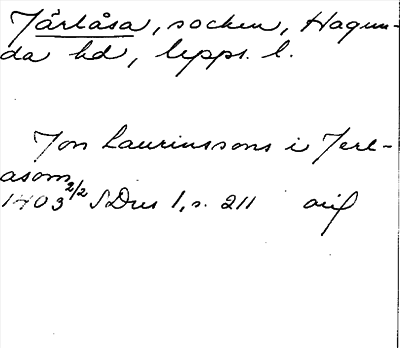 Järlåsa, socken, Hagun-
da hd, Upps. l.
Jon Laurinssons i Jerl-
asom
1403 2/2 SDns 1, s. 211 orig